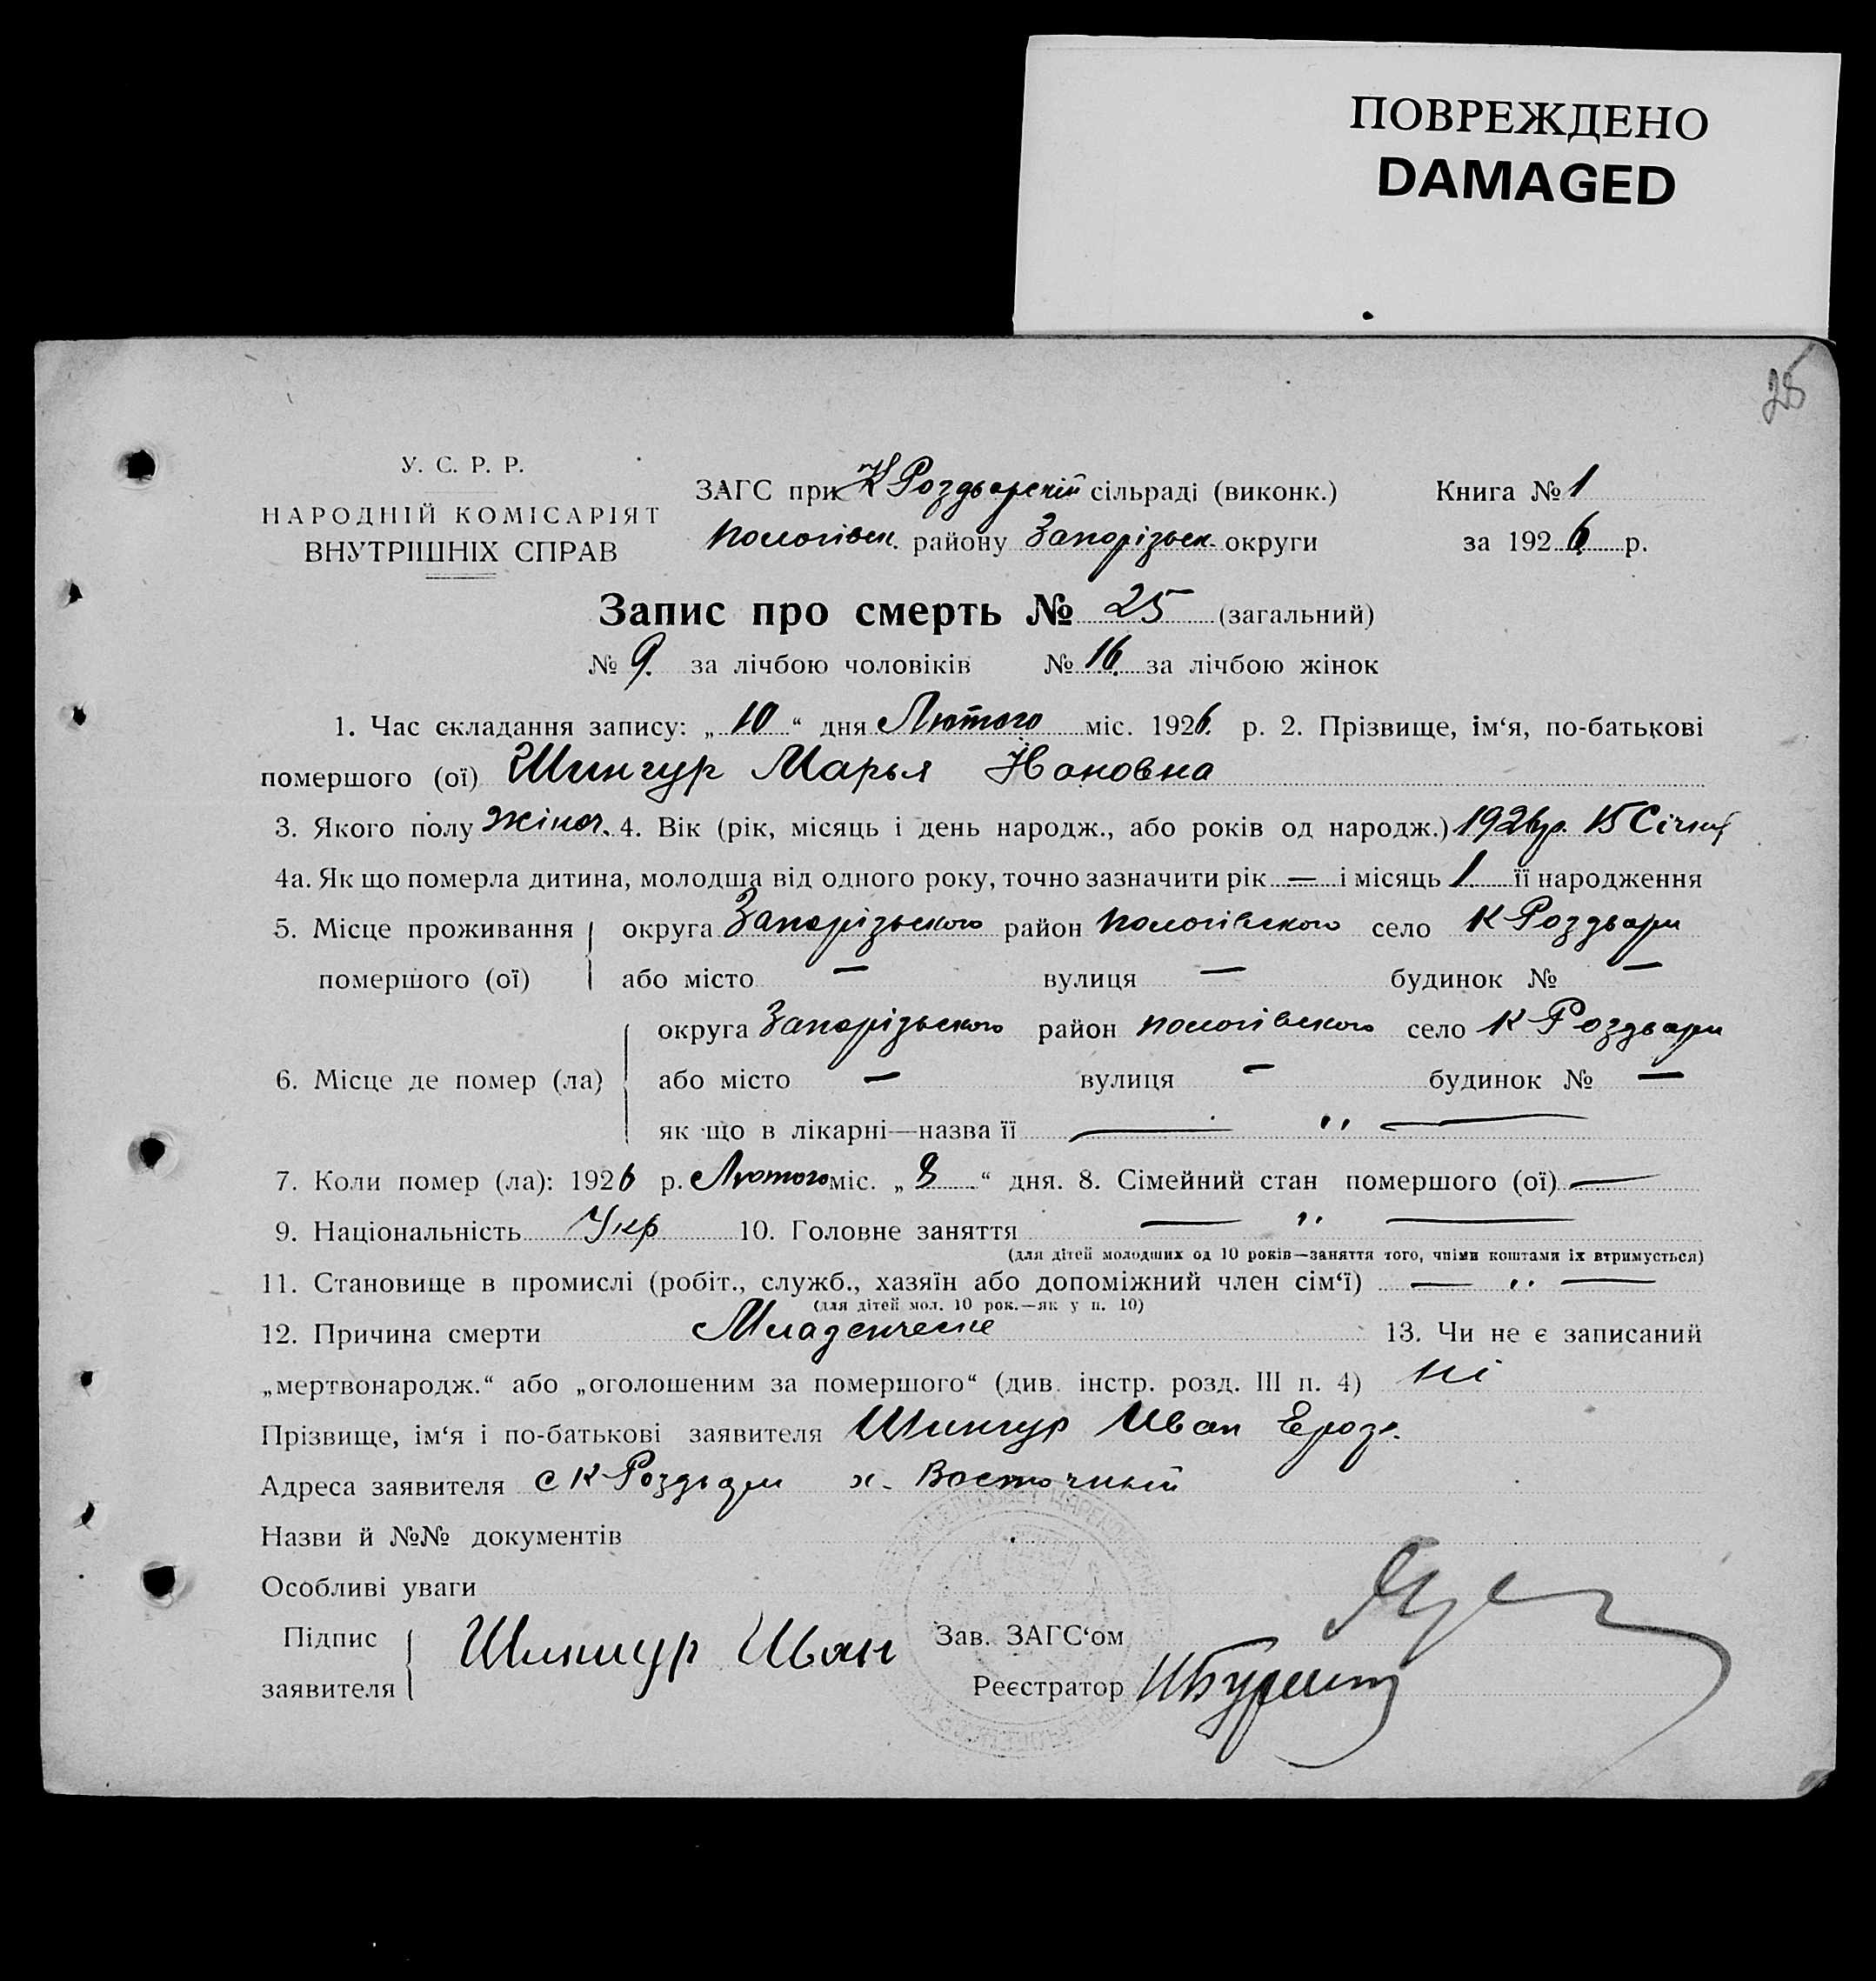 ПОВРЕЖДЕНО
DAMAGED
25
У. С. Р. Р.
НАРОДНІЙ КОМІСАРІЯТ
ВНУТРІШНІХ СПРАВ
ЗАГС при К Роздорській сільраді (виконк.)
Пологівськ. району Запорізьк. округи
Книга № 1
за 1926 р.
Запис про смерть № 25 (загальний)
№ 9. за лічбою чоловіків № 16. за лічбою жінок
1. Час складання запису: „10“ дня Лютого міс. 1926. р. 2. Прізвище, ім‘я, по-батькові
помершого (ої) Шингур Марья
3. Якого полу жіноч. 4. Вік (рік, місяць і день народж., або років од народж.) 1926 р. 15 Січня
4а. Як що померла дитина, молодша від одного року, точно зазначити рік — і місяць 1 її народження
5. Місце проживання округа Запорізького район Пологівского село К Роздори
помершого (ої) або місто — вулиця — будинок № —
округа Запорізького район Пологівского село К Роздори
6. Місце де помер (ла) або місто — вулиця — будинок № —
як що в лікарні—назва її — „ —
7. Коли помер (ла): 1926 р. Лютого міс. „8“ дня. 8. Сімейний стан помершого (ої) —
9. Національність Укр 10. Головне заняття — „ —
(для дітей молодших од 10 років—заняття того, чиїми коштами їх втримується)
11. Становище в промислі (робіт., служб., хазяїн або допоміжний член сім‘ї) — „ —
(для дітей мол. 10 рок.—як у п. 10)
12. Причина смерти Младенческе 13. Чи не є записаний
„мертвонародж.“ або „оголошеним за помершого“ (див. інстр. розд. III п. 4) ні
Прізвище, ім‘я і по-батькові заявителя Шингур Иван
Адреса заявителя с К Роздори х. Восточний
Назви й №№ документів
Особливі уваги
Підпис
заявителя Шингур Иван
Зав. ЗАГС‘ом
Реєстратор